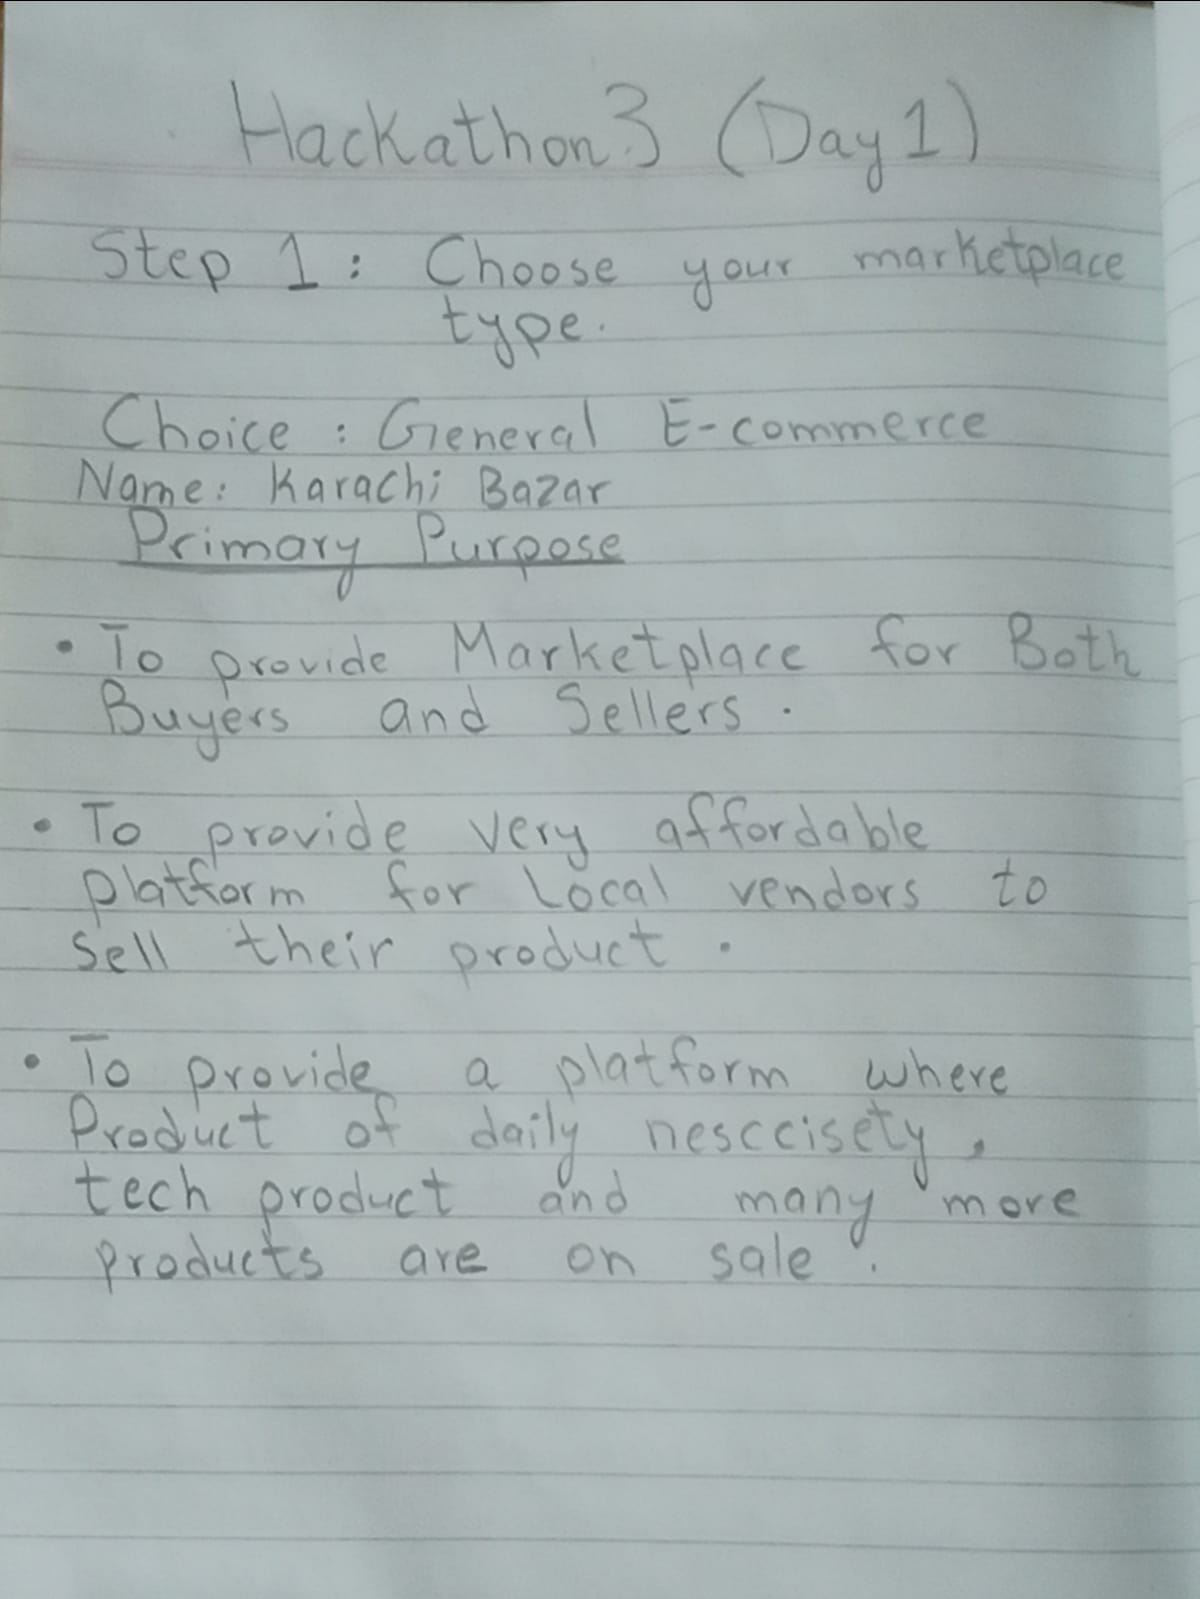 Hackathon 3 (Day 1)
Step 1 : Choose your marketplace
type.
Choice : General E-commerce
Name: Karachi Bazar
Primary Purpose
• To provide Marketplace for Both
Buyers and Sellers .
• To provide very affordable
platform for Local vendors to
sell their product .
• To provide a platform where
Product of daily nesccisety,
tech product and many more
products are on sale .